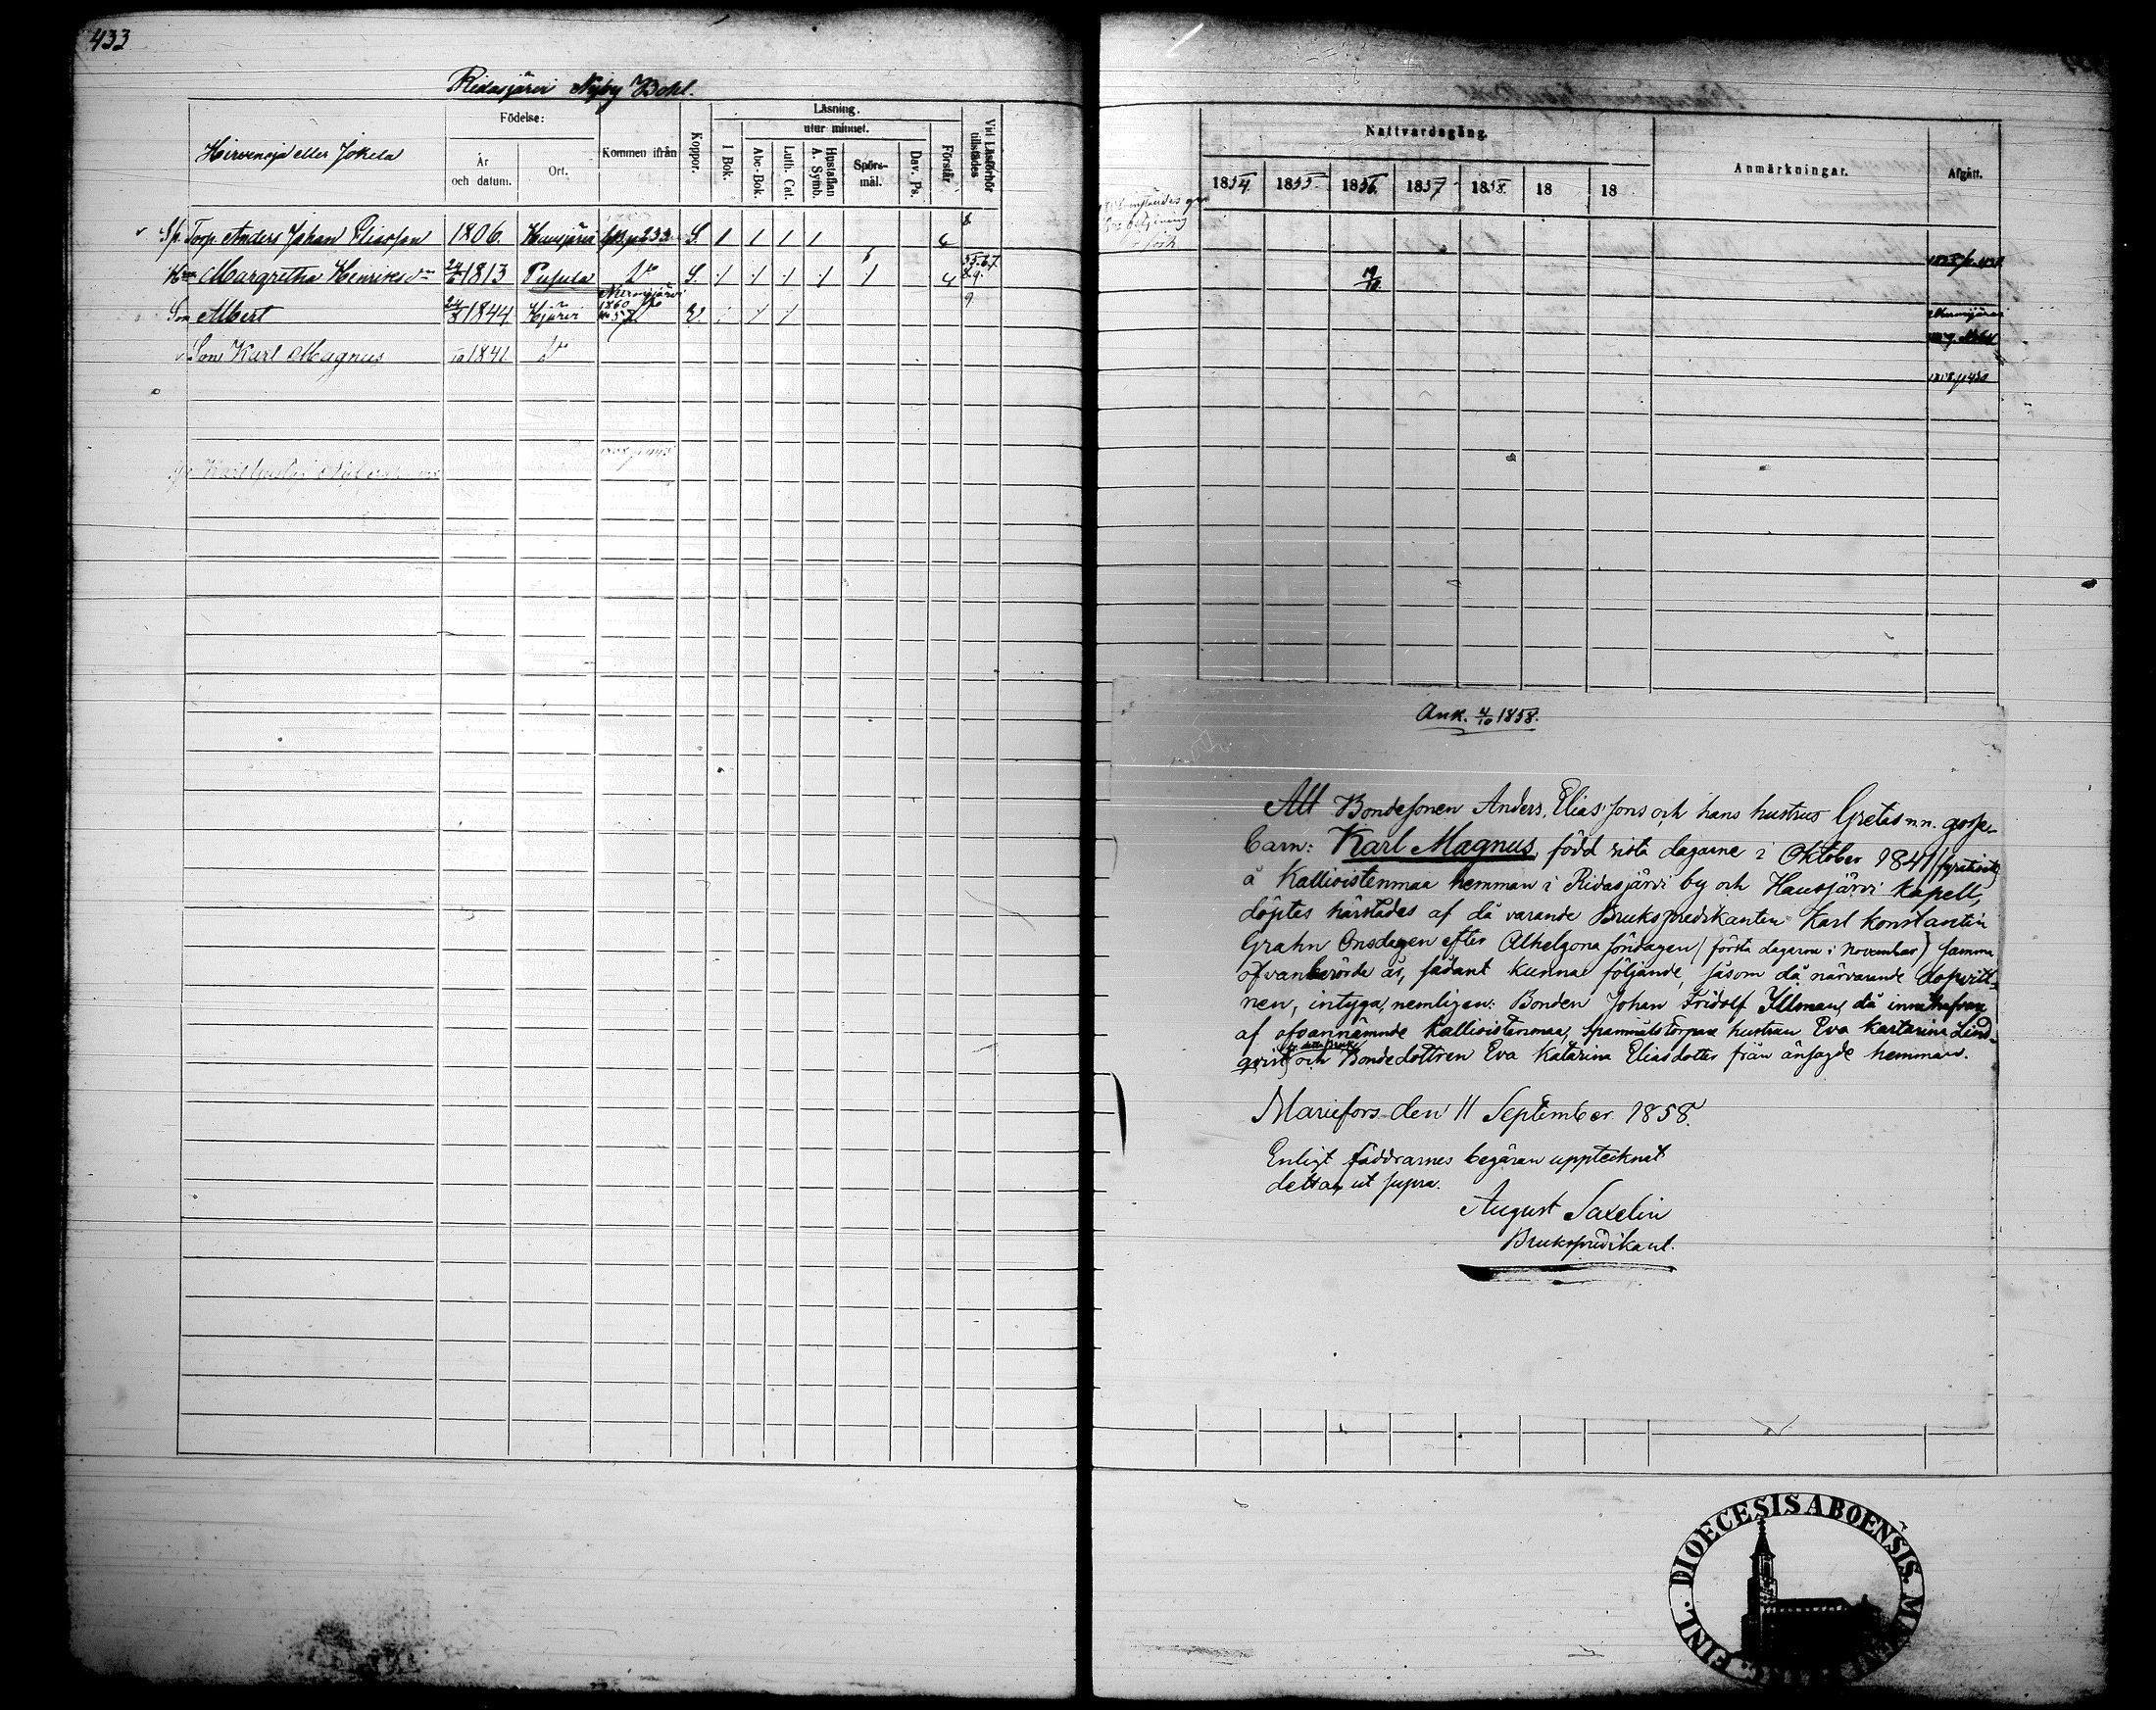 433
Ridasjärvi Nyby Bohl.
Hirvenoja eller Jokela
Födelse:
År och datum.
Ort.
Kommen ifrån
Koppor.
Läsning.
utur minnet.
I Bok.
Abc-Bok.
Luth. Cat.
Hustaflan A. Symb.
Spörsmål.
Dav. Ps.
Förstår
Vid Läsförhör tillstädes
Sp. Torp. Anders Johan Eliasson 1806. Hausjärvi p. 233 S.
Margretha Henriksdr 1813 Pusula S.
Son Albert 1844 Hjärvi 1860
Son Karl Magnus 1841
Nattvardsgång.
Anmärkningar.
Afgått.
1854. 1855. 1856. 1857 1858. 18 18
Ank. 4/10 1858.
Att Bondesonen Anders Eliassons och hans hustrus Gretas m.n. gosse-
barn: Karl Magnus, född sista dagarne i Oktober 1841
å Kallioistenmaa hemman i Ridasjärvi by och Hausjärvi Kapell,
döptes härstädes af då varande Brukspredikanten Karl Konstantin
Grahn Onsdagen efter Alhelgona söndagen (första dagarne i November) samma
ofvanberörde år, sådant kunna följande, såsom då närvarande dopvitt-
nen, intyga, nemligen: Bonden Johan Fridolf Illman, då innehafvare
af ofvannämnde Kallioistenmaa, spannmålstorpare hustrun Eva Kartarina Lind-
qvist och Bondedottren Eva Katarina Eliasdotter från änsagde hemman.
Mariefors den 11 September 1858.
Enligt faddrarnes begäran upptecknat
detta, ut supra.
August Saxelin
Brukspredikant.
FINL. DIOECESIS ABOENSIS.